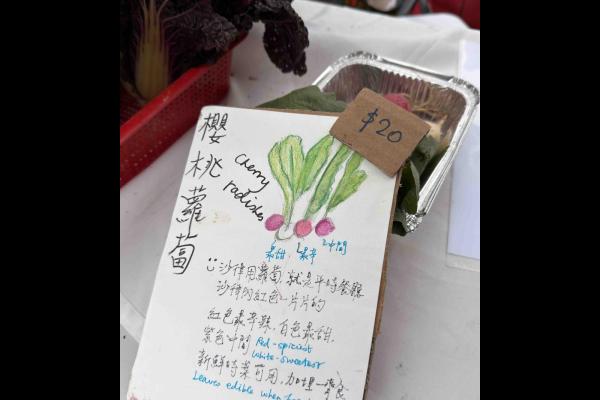 櫻桃蘿蔔
cherry
radishes
$20
最甜 最辛 中間
沙律用蘿蔔, 就是平時餐廳
沙律的紅色一片片的
紅色最辛辣, 白色最甜,
紫色中間 Red-spiciest
White-sweetest
新鮮時菜可用, 加埋一齊食
Leaves edible when